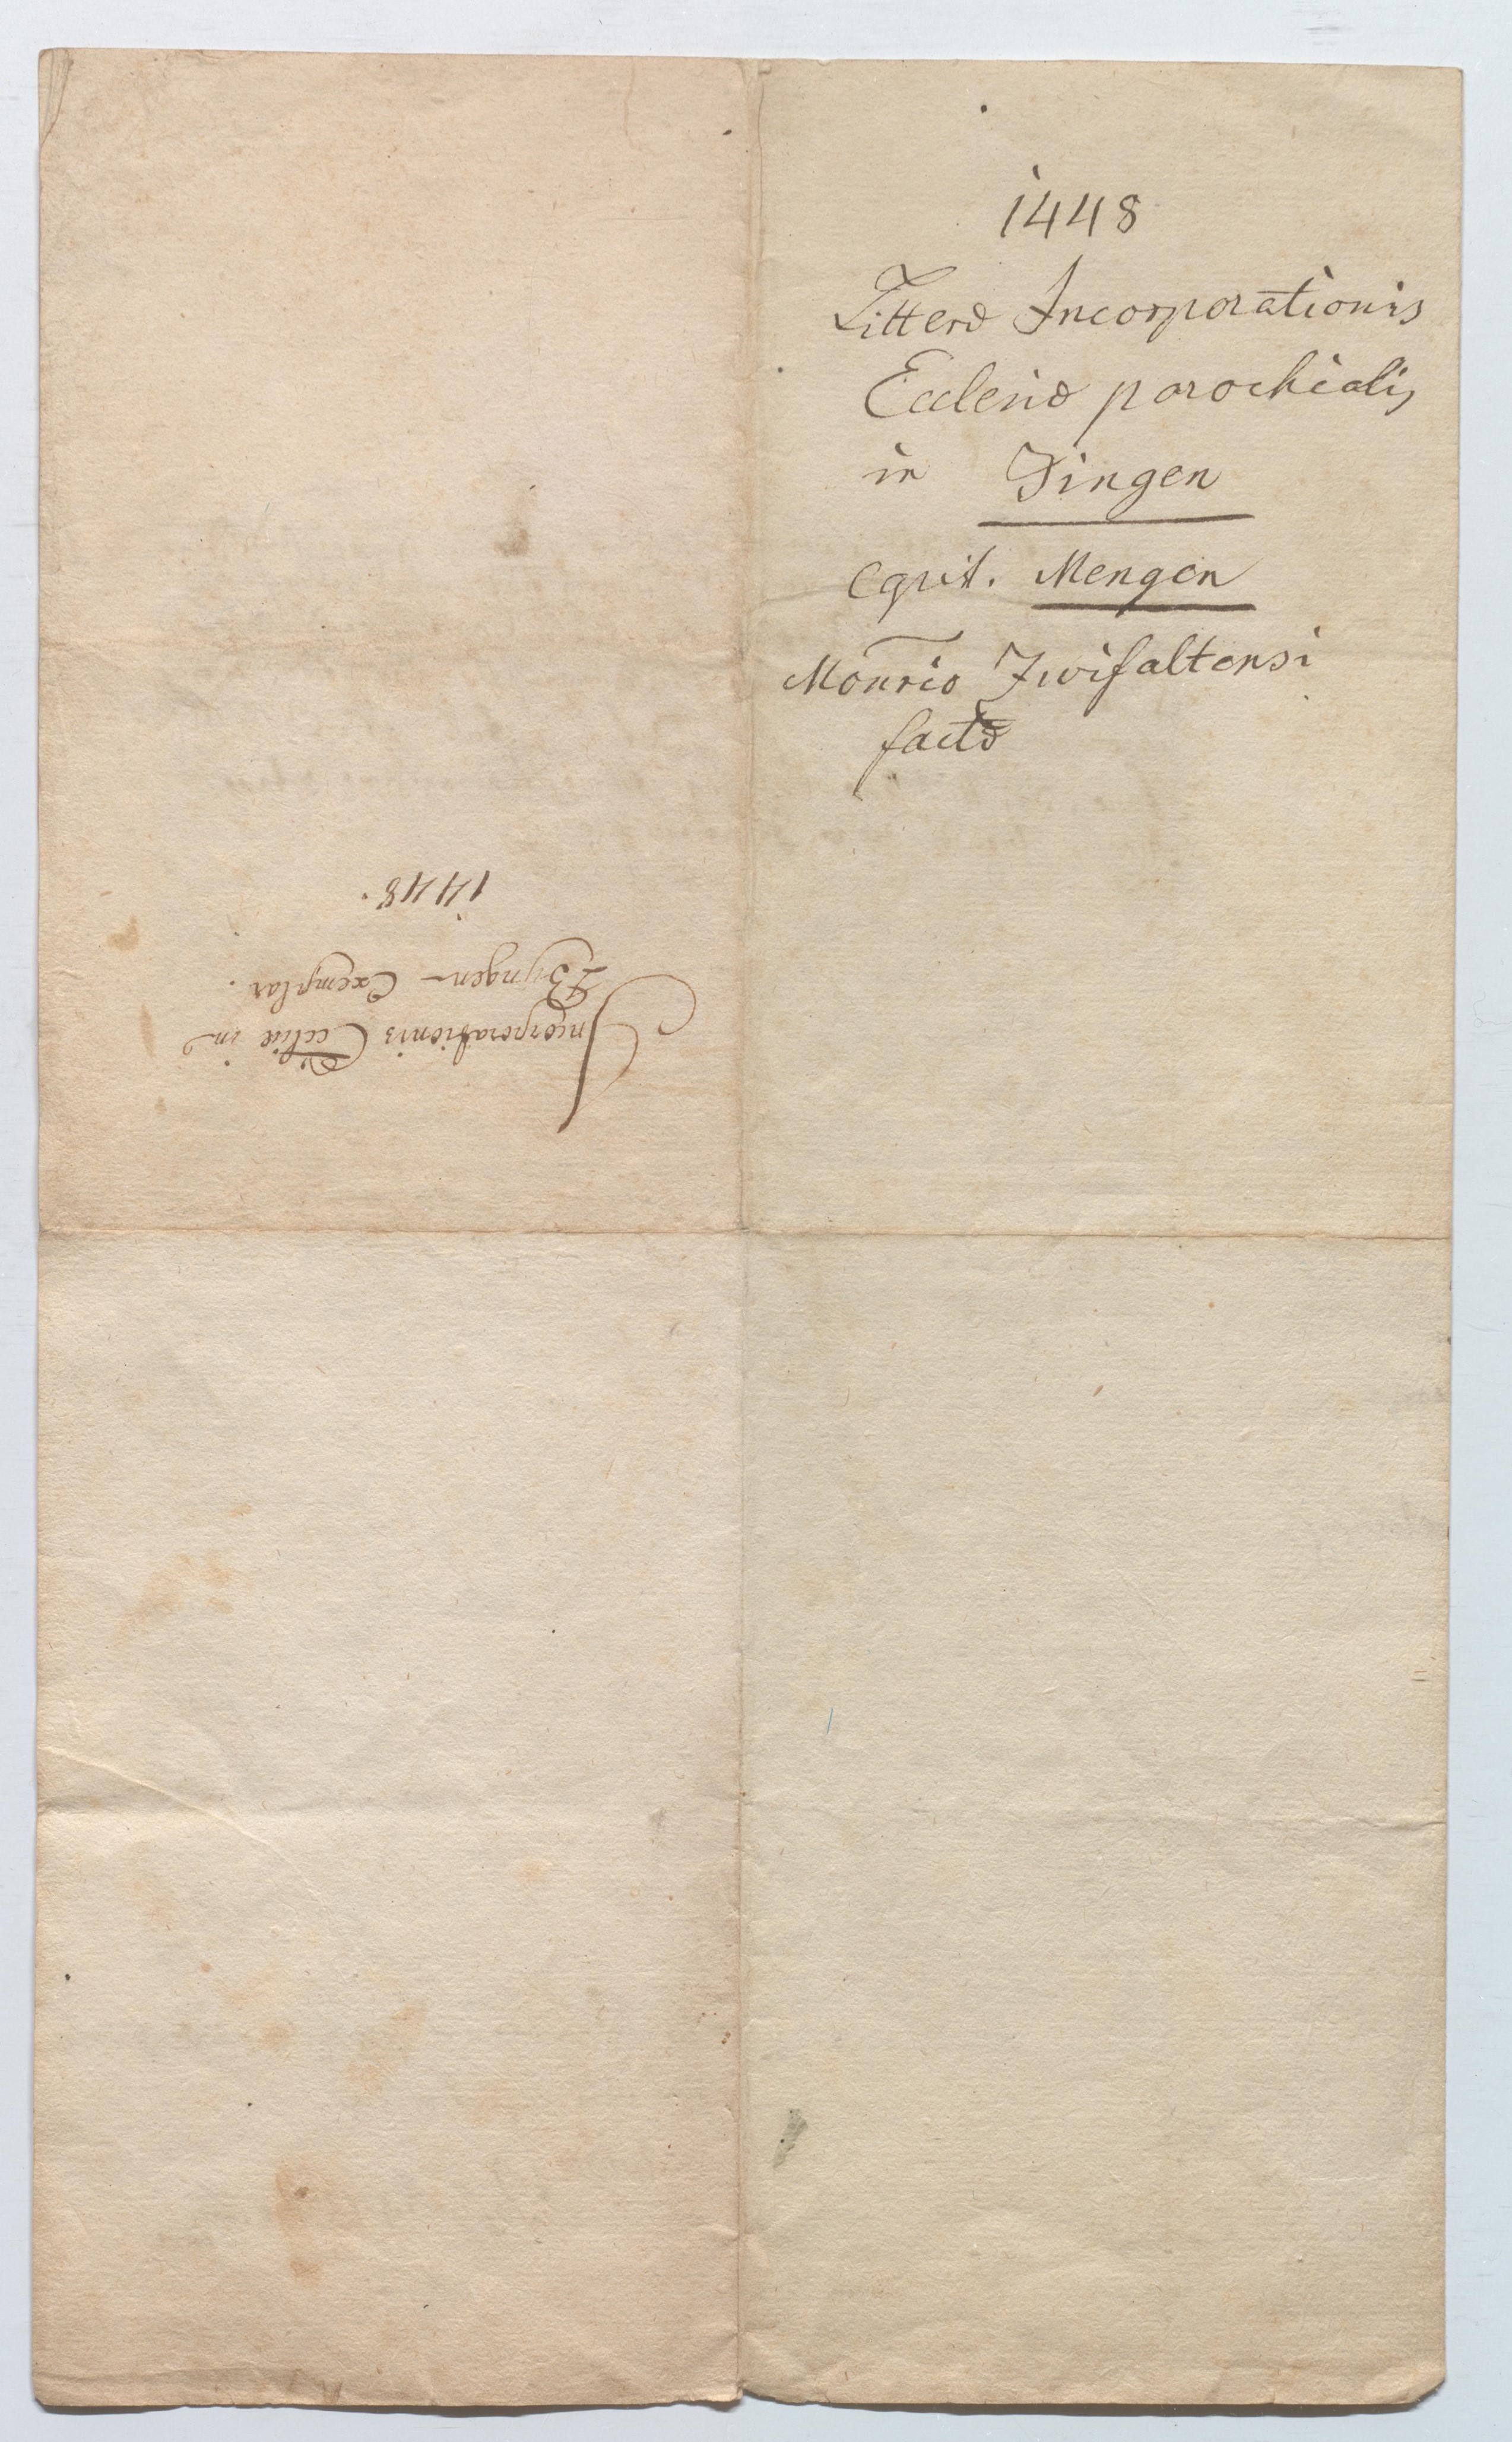 1448
Litteræ Incorporationis
Ecclesiæ parochialis
in Bingen
Capit. Mengen
Monrio Zwifaltensi
factæ
Incorporationis Eccliæ in
Byngen Exemplar.
1448.